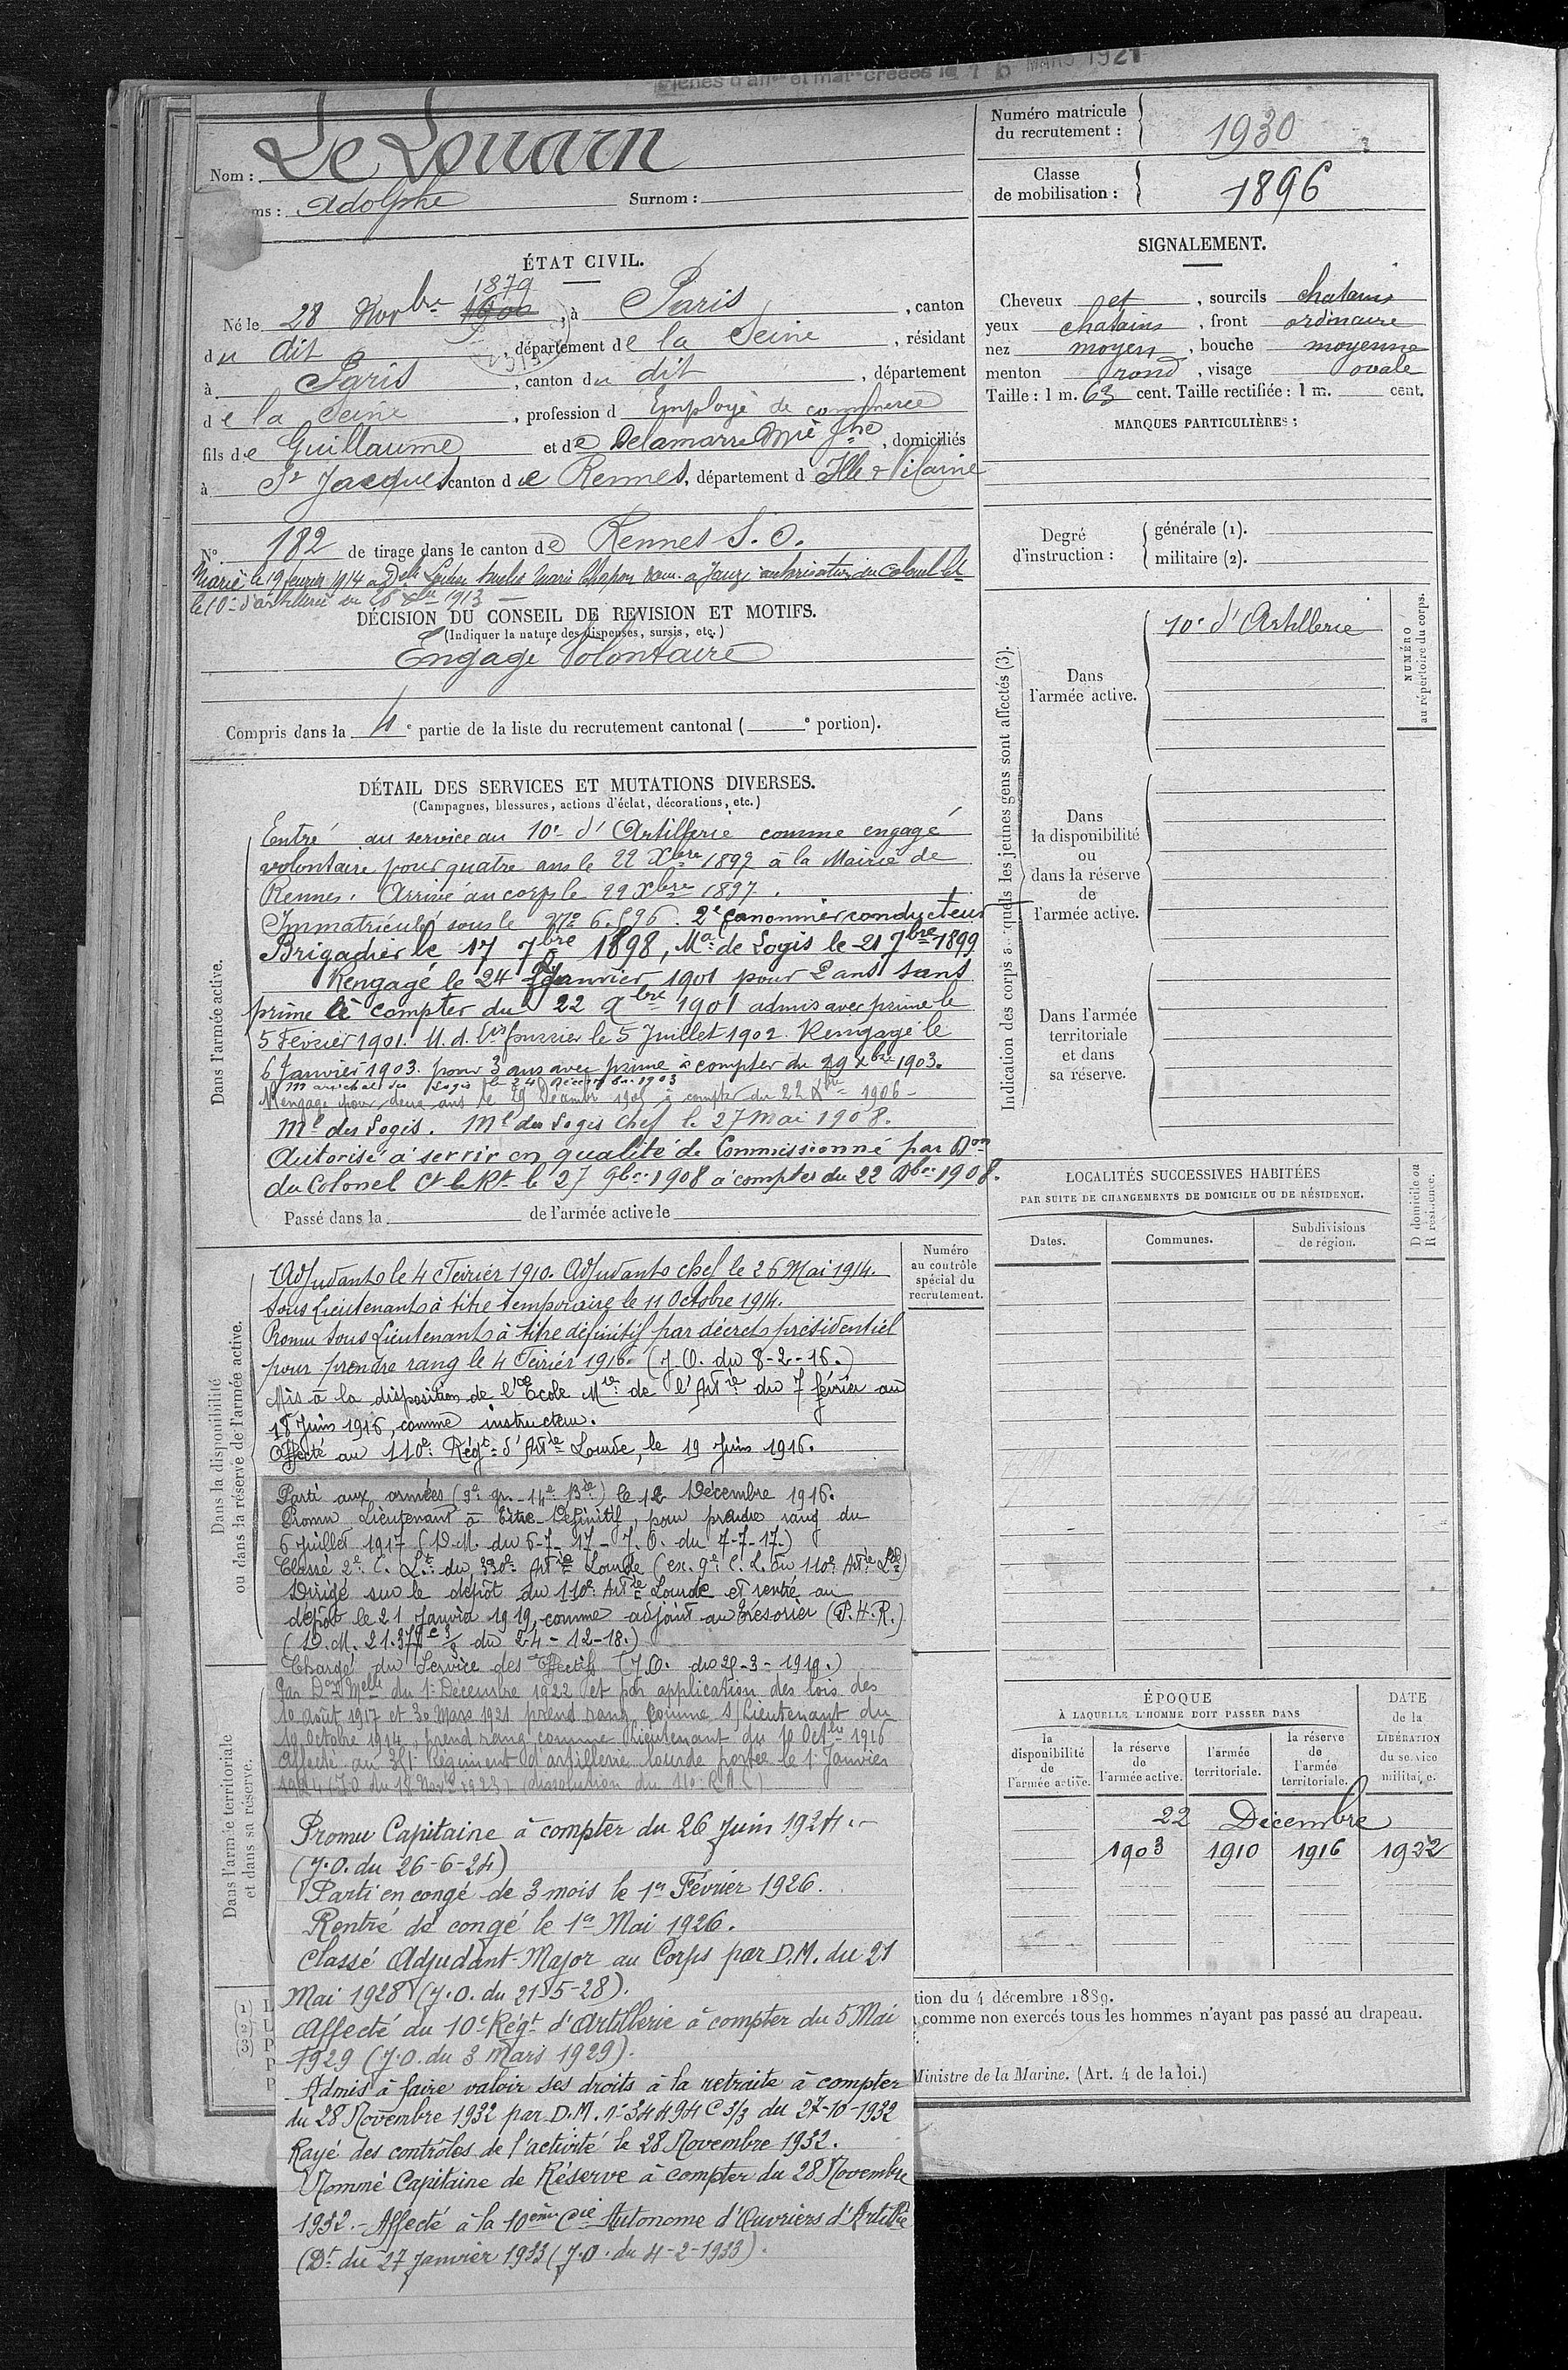 Fiches d'aff. et mat. créées le 16 MARS 1921
Nom : Le Louarn
ms : Adolphe Surnom :
Numéro matricule du recrutement : 1930
Classe de mobilisation : 1896
ÉTAT CIVIL.
1879
Né le 28 Novbre 1900, à Paris, canton
du dit, département de la Seine, résidant
à Paris, canton du dit, département
de la Seine, profession d Employé de commerce
fils de Guillaume et de Delamarre Mie Jne, domiciliés
à St Jacques canton de Rennes, département d Ille & Vilaine
N° 182 de tirage dans le canton de Rennes S. O.
Marié le 19 février 1914 à Delle Louise Marie à Janzé autorisation du Colonel Ct
le 10e d'artillerie du 1913
DÉCISION DU CONSEIL DE REVISION ET MOTIFS.
(Indiquer la nature des dispenses, sursis, etc.)
Engagé Volontaire
Compris dans la 4e partie de la liste du recrutement cantonal ( e portion).
SIGNALEMENT.
Cheveux et, sourcils chatains
yeux chatains, front ordinaire
nez moyen, bouche moyenne
menton rond, visage ovale
Taille : 1 m. 63 cent. Taille rectifiée : 1 m. cent.
MARQUES PARTICULIÈRES :
Degré d'instruction :
générale (1).
militaire (2).
Indication des corps auxquels les jeunes gens sont affectés (3).
NUMÉRO au répertoire du corps.
Dans l'armée active.
10e d'Artillerie
Dans
la disponibilité
ou
dans la réserve
de
l'armée active.
Dans l'armée
territoriale
et dans
sa réserve.
DÉTAIL DES SERVICES ET MUTATIONS DIVERSES.
(Campagnes, blessures, actions d'éclat, décorations, etc.)
Dans l'armée active.
Entré au service au 10e d'Artillerie comme engagé
volontaire pour quatre ans le 22 Xbre 1897 à la Mairie de
Rennes. Arrivé au corps le 22 Xbre 1897.
Immatriculé sous le No 6.596. 2e Canonnier conducteur
Brigadier le 17 7bre 1898, Mal de Logis le 21 7bre 1899
Rengagé le 24 Janvier 1901 pour 2 ans sans
prime à compter du 22 Xbre 1901 admis avec prime le
5 Février 1901. M. d. Lis fourrier le 5 Juillet 1902. Rengagé le
6 Janvier 1903 pour 3 ans avec prime à compter du 22 Xbre 1903.
Maréchal des Logis le 24 Décembre 1903
Rengagé pour deux ans le 29 Décembre 1905 à compter du 22 Xbre 1906
Ml des Logis. Ml des Logis Chef le 27 Mai 1908.
Autorisé à servir en qualité de Commissionné par Don
du Colonel Ct le Rt le 27 9bre 1908 à compter du 22 Xbre 1908.
Passé dans la de l'armée active le
Numéro
au contrôle
spécial du
recrutement.
Dans la disponibilité
ou dans la réserve de l'armée active.
Adjudant le 4 Février 1910. Adjudant chef le 26 Mai 1914.
Sous Lieutenant à titre temporaire le 11 Octobre 1914.
Promu Sous Lieutenant à titre définitif par décret présidentiel
pour prendre rang le 4 Février 1916. (J.O. du 8-2-16.)
Mis à la disposition de l'Ecole Mre de l'Artie du 7 février au
18 Juin 1916, comme instructeur.
Affecté au 110e Régt d'Artie Lourde, le 19 Juin 1916.
Parti aux armées (3e gr. - 14e Bie) le 12 Décembre 1916.
Promu Lieutenant à titre Définitif, pour prendre rang du
6 Juillet 1917 (D.M. du 6-7-17 - J.O. du 7-7-17.)
Classé 2e C. Lt du 330e Artie Lourde (ex. 9e C. L. du 110e Artie Lde)
Dirigé sur le dépôt du 110e Artie Lourde et rentré au
dépôt le 21 Janvier 1919, comme adjoint au trésorier (P.H.R.)
(D.M. 21.377 c 3/3 du 24-12-18.)
Chargé du Service des Effectifs (J.O. du 29-3-1919.)
Par Don Melle du 1er Décembre 1922 et par application des lois des
10 août 1917 et 30 Mars 1921 prend rang comme s/Lieutenant du
10 Octobre 1914, prend rang comme Lieutenant du 10 Octbre 1916
Affecté au 351e Régiment d'artillerie lourde portée le 1er Janvier
1924 (J.O. du 18 Novbre 1923) (dissolution du 110e R.A.L.)
Dans l'armée territoriale
et dans sa réserve.
Promu Capitaine à compter du 26 Juin 1924.
(J.O. du 26-6-24)
Parti en congé de 3 mois le 1er Février 1926.
Rentré de congé le 1er Mai 1926.
Classé Adjudant-Major au Corps par D.M. du 21
Mai 1928 (J.O. du 21-5-28).
Affecté au 10e Régt d'Artillerie à compter du 5 Mai
1929 (J.O. du 3 Mars 1929).
Admis à faire valoir ses droits à la retraite à compter
du 28 Novembre 1932 par D.M. n° 34494 C 3/3 du 27-10-1932
Rayé des contrôles de l'activité le 28 Novembre 1932.
Nommé Capitaine de Réserve à compter du 28 Novembre
1932. - Affecté à la 10ème Cie Autonome d'Ouvriers d'Artillie
(Dt du 27 Janvier 1933 (J.O. du 4-2-1933).
LOCALITÉS SUCCESSIVES HABITÉES
PAR SUITE DE CHANGEMENTS DE DOMICILE OU DE RÉSIDENCE.
Dates. Communes. Subdivisions de région. D domicile ou R résidence.
ÉPOQUE
À LAQUELLE L'HOMME DOIT PASSER DANS
la disponibilité de l'armée active.
la réserve de l'armée active.
l'armée territoriale.
la réserve de l'armée territoriale.
DATE de la LIBÉRATION du service militaire.
22 Décembre
1903 1910 1916 1922
(1) L
(2) L
(3) P
P
P
tion du 4 décembre 1889.
, comme non exercés tous les hommes n'ayant pas passé au drapeau.
Ministre de la Marine. (Art. 4 de la loi.)